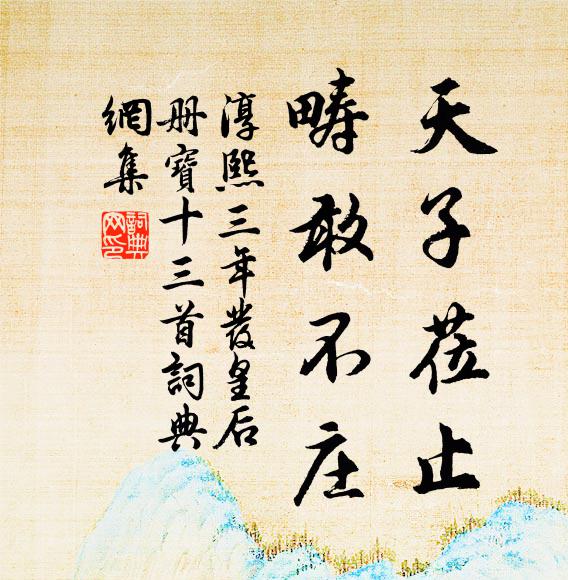 天子莅止
畴敢不庄
淳熙三年發皇后
册寶十三首詞典
網集
詞典
网印